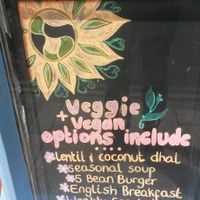 Veggie
+ Vegan
options include
....
Lentil & coconut dhal
seasonal soup
5 Bean Burger
English Breakfast